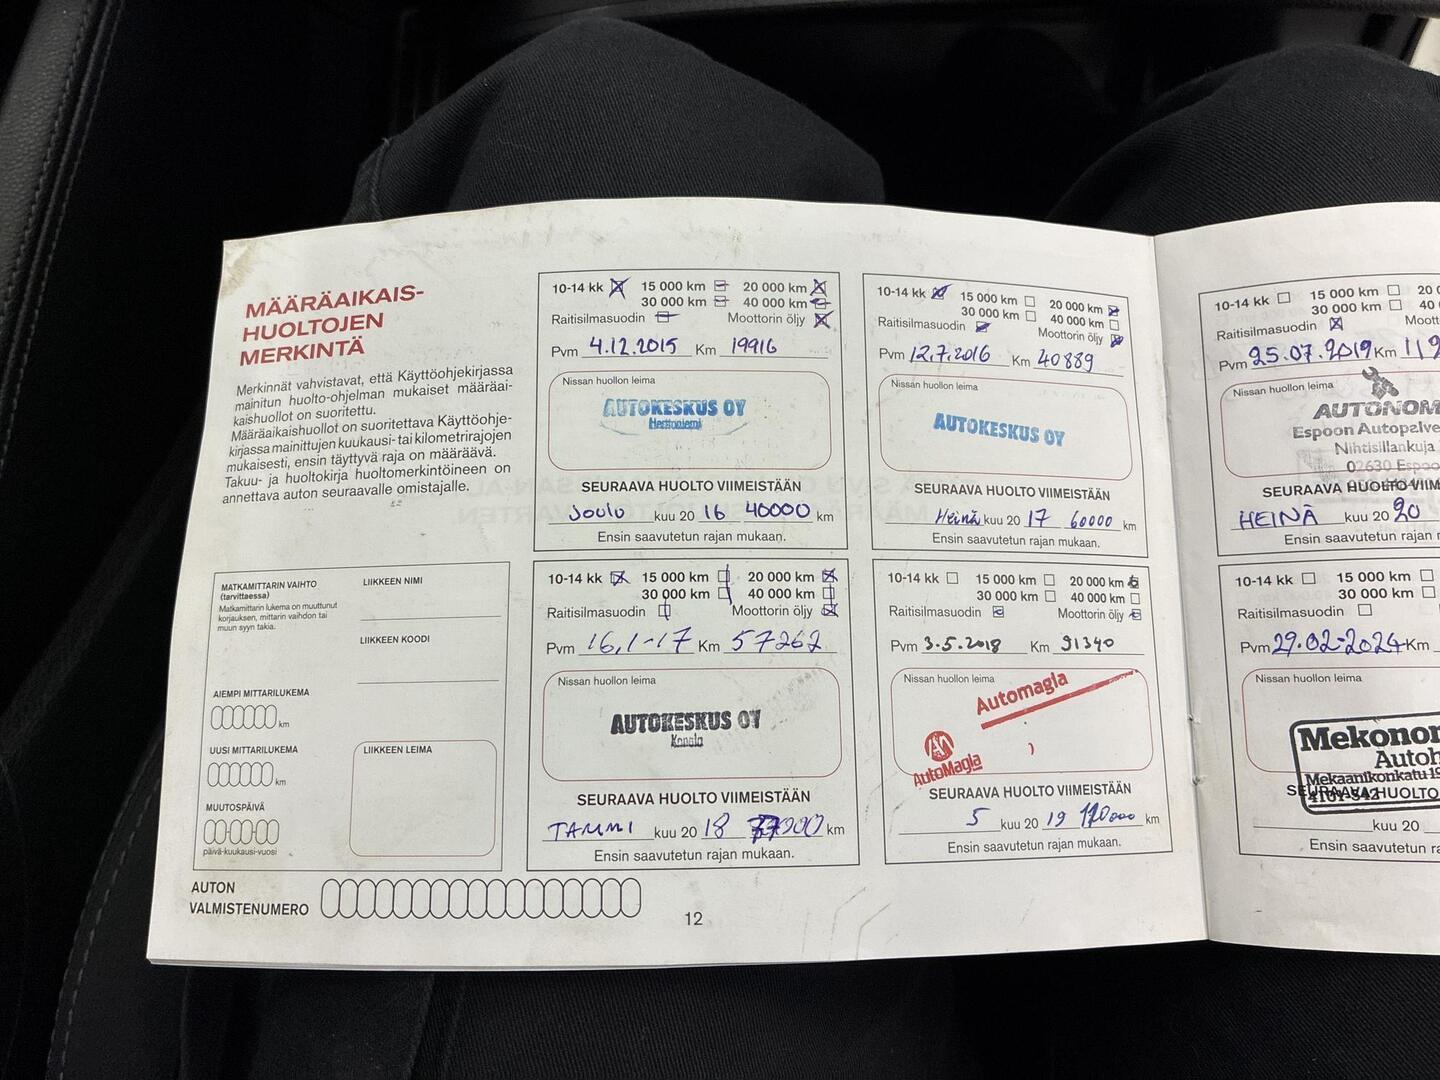 MÄÄRÄAIKAIS-
HUOLTOJEN
MERKINTÄ
Merkinnät vahvistavat, että Käyttöohjekirjassa
mainitun huolto-ohjelman mukaiset määräai-
kaishuollot on suoritettu.
Määräaikaishuollot on suoritettava Käyttöohje-
kirjassa mainittujen kuukausi- tai kilometrirajojen
mukaisesti, ensin täyttyvä raja on määräävä.
Takuu- ja huoltokirja huoltomerkintöineen on
annettava auton seuraavalle omistajalle.
MATKAMITTARIN VAIHTO
(tarvittaessa)
Matkamittarin lukema on muuttunut
korjauksen, mittarin vaihdon tai
muun syyn takia.
LIIKKEEN NIMI
LIIKKEEN KOODI
AIEMPI MITTARILUKEMA
km
UUSI MITTARILUKEMA
km
MUUTOSPÄIVÄ
päivä-kuukausi-vuosi
LIIKKEEN LEIMA
AUTON
VALMISTENUMERO
10-14 kk 15 000 km 20 000 km
30 000 km 40 000 km
Raitisilmasuodin Moottorin öljy
Pvm 4.12.2015 Km 19916
Nissan huollon leima
AUTOKESKUS OY
Herttoniemi
SEURAAVA HUOLTO VIIMEISTÄÄN
Joulu kuu 20 16 40000 km
Ensin saavutetun rajan mukaan.
10-14 kk 15 000 km 20 000 km
30 000 km 40 000 km
Raitisilmasuodin Moottorin öljy
Pvm 12.7.2016 Km 40889
Nissan huollon leima
AUTOKESKUS OY
SEURAAVA HUOLTO VIIMEISTÄÄN
Heinä kuu 20 17 60000 km
Ensin saavutetun rajan mukaan.
10-14 kk 15 000 km 20 000 km
30 000 km 40 000 km
Raitisilmasuodin Moottorin öljy
Pvm 16.1-17 Km 57262
Nissan huollon leima
AUTOKESKUS OY
Konala
SEURAAVA HUOLTO VIIMEISTÄÄN
TAMMI kuu 20 18 77000 km
Ensin saavutetun rajan mukaan.
10-14 kk 15 000 km 20 000 km
30 000 km 40 000 km
Raitisilmasuodin Moottorin öljy
Pvm 3.5.2018 Km 91340
Nissan huollon leima
Automagia
AutoMagia
SEURAAVA HUOLTO VIIMEISTÄÄN
5 kuu 20 19 110000 km
Ensin saavutetun rajan mukaan.
12
10-14 kk 15 000 km 20 0
30 000 km 40
Raitisilmasuodin Moott
Pvm 25.07.2019 Km 119
Nissan huollon leima
AUTONOM
Espoon Autopalve
Nihtisillankuja
02630 Espoo
SEURAAVA HUOLTO VIIM
HEINÄ kuu 20 20
Ensin saavutetun rajan m
10-14 kk 15 000 km
30 000 km
Raitisilmasuodin
Pvm 29.02-2024 Km
Nissan huollon leima
Mekonom
Autoh
Mekaanikonkatu 19
4101-542
SEURAAVA HUOLTO
kuu 20
Ensin saavutetun ra